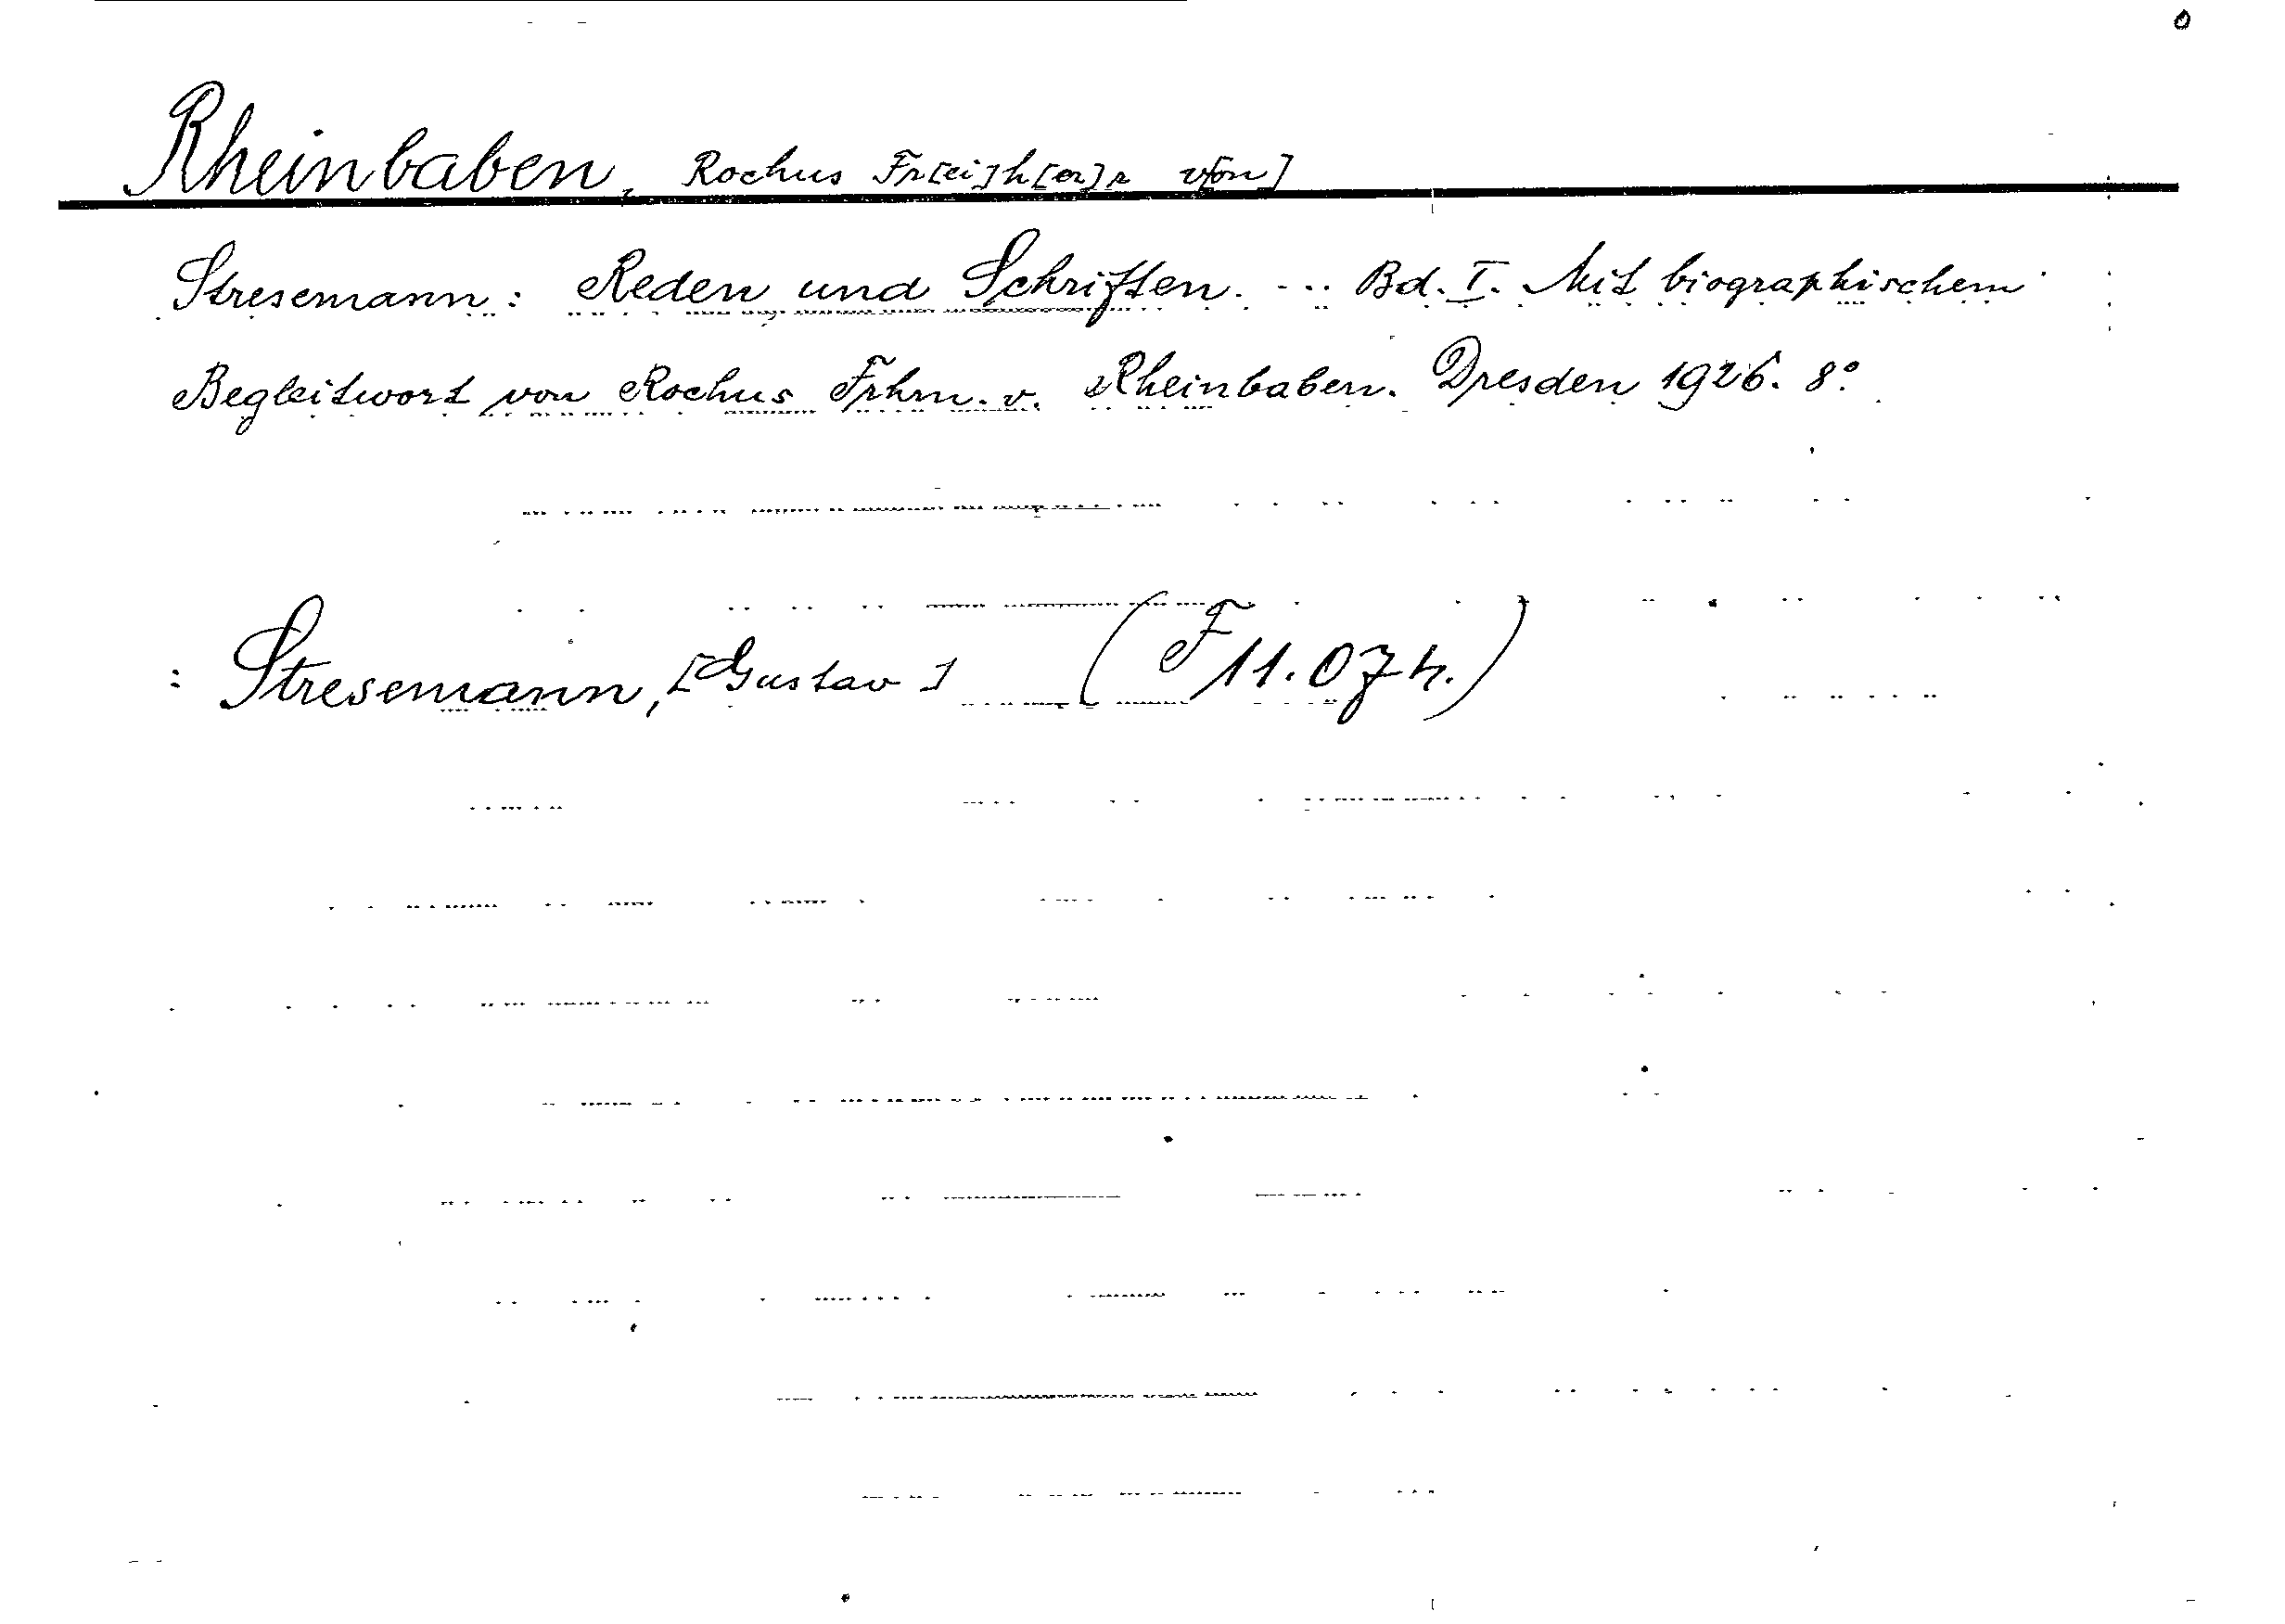 Rheinbaben, Rochus Fr[ei]h[er]r v[on]
Stresemann: Reden und Schriften. ... Bd. I. Mit biographischem
Begleitwort von Rochus Frhrn. v. Rheinbaben. Dresden 1926. 8°
: Stresemann, [Gustav] (F 11.074.)